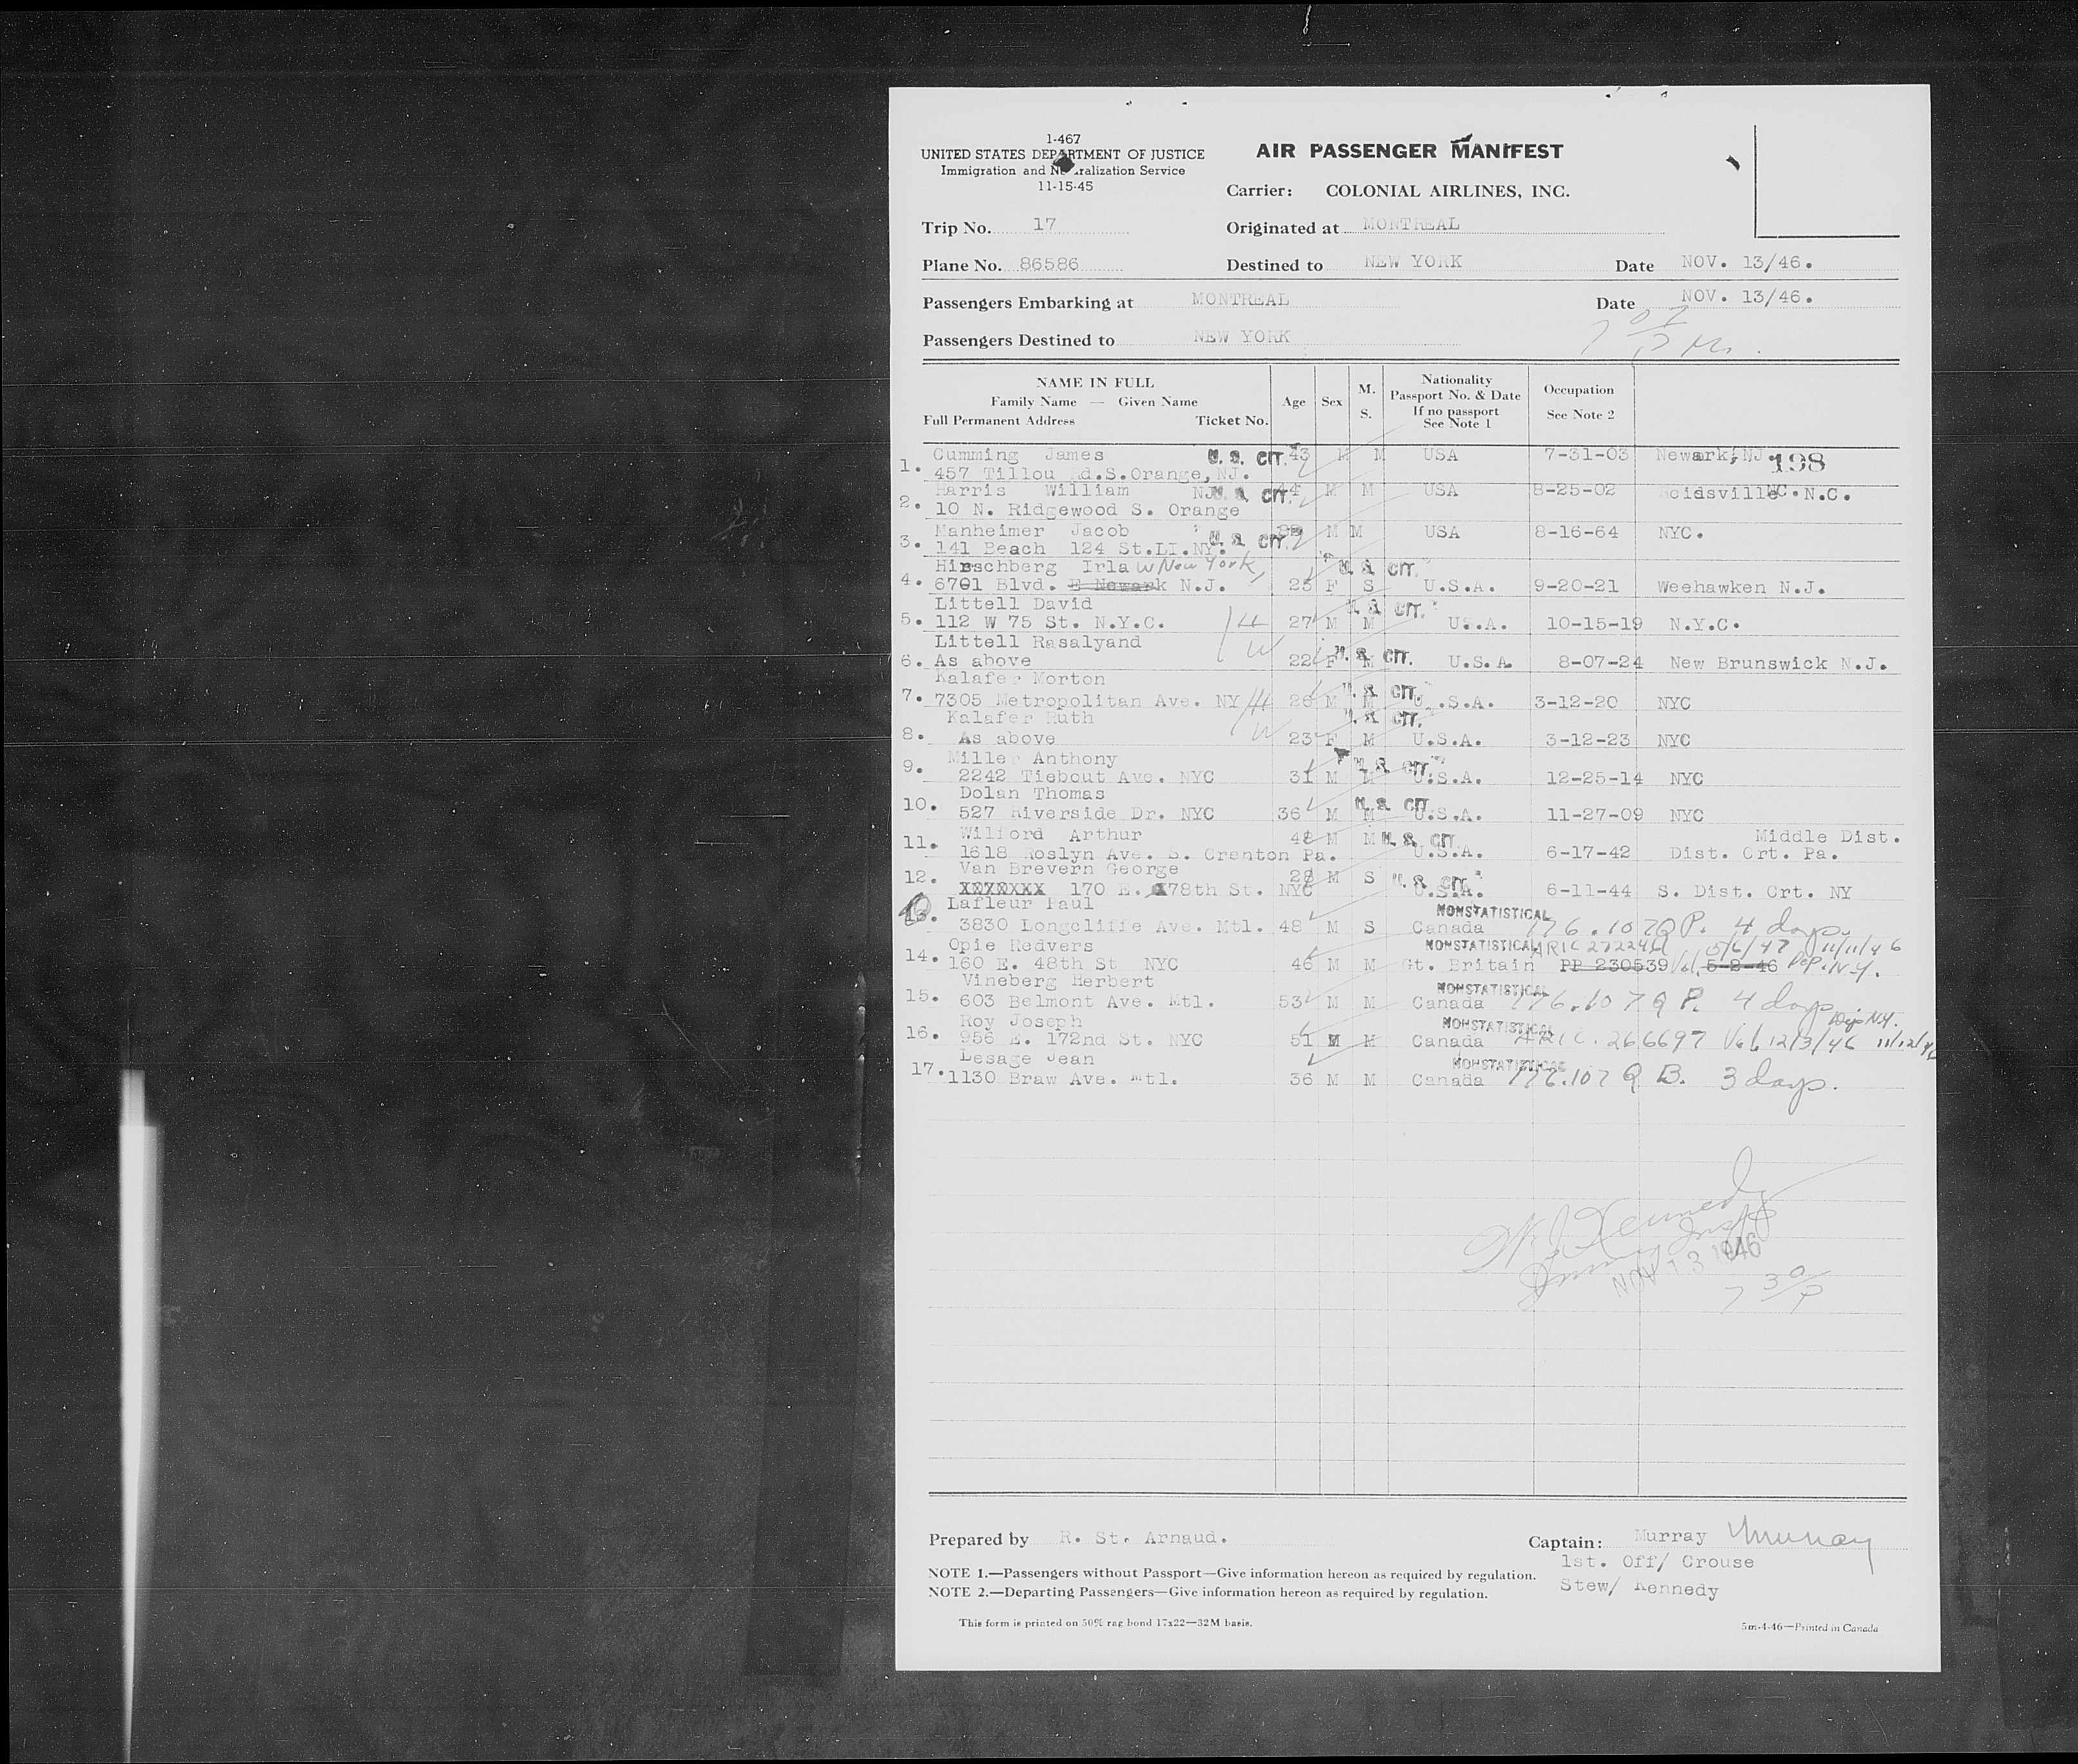 1-467
UNITED STATES DEPARTMENT OF JUSTICE
Immigration and Naturalization Service
11-15-45
AIR PASSENGER MANIFEST
Carrier: COLONIAL AIRLINES, INC.
Trip No. 17 Originated at MONTREAL
Plane No. 86586 Destined to NEW YORK Date NOV. 13/46.
Passengers Embarking at MONTREAL Date NOV. 13/46.
Passengers Destined to NEW YORK
NAME IN FULL
Family Name — Given Name
Full Permanent Address Ticket No.
Age Sex M. S.
Nationality
Passport No. & Date
If no passport
See Note 1
Occupation
See Note 2
198
1. Cumming James U. S. CIT. 43 M M USA 7-31-03 Newark, NJ.
457 Tillou Rd.S.Orange, NJ.
2. Harris William NJ U. S. CIT. 44 M M USA 8-25-02 Reidsville N.C.
10 N. Ridgewood S. Orange
3. Manheimer Jacob U. S. CIT. M M USA 8-16-64 NYC.
141 Beach 124 St.LI.NY.
4. Hirschberg Irla W New York, U. S. CIT.
6701 Blvd. E Newark N.J. 25 F S U.S.A. 9-20-21 Weehawken N.J.
5. Littell David U. S. CIT.
112 W 75 St. N.Y.C. H 27 M M U.S.A. 10-15-19 N.Y.C.
6. Littell Rasalyand W U. S. CIT.
As above 22 F M U.S.A. 8-07-24 New Brunswick N.J.
7. Kalafer Morton U. S. CIT.
7305 Metropolitan Ave. NY H 26 M M U.S.A. 3-12-20 NYC
8. Kalafer Ruth W U. S. CIT.
As above 23 F M U.S.A. 3-12-23 NYC
9. Miller Anthony U. S. CIT.
2242 Tiebout Ave. NYC 31 M M U.S.A. 12-25-14 NYC
10. Dolan Thomas U. S. CIT.
527 Riverside Dr. NYC 36 M M U.S.A. 11-27-09 NYC
11. Wilford Arthur 48 M M U. S. CIT. Middle Dist.
1618 Roslyn Ave. S. Cranton Pa. U.S.A. 6-17-42 Dist. Crt. Pa.
12. Van Brevern George 28 M S U. S. CIT.
XXXXXXX 170 E. 78th St. NYC U.S.A. 6-11-44 S. Dist. Crt. NY
13. Lafleur Paul NONSTATISTICAL
3830 Longcliffe Ave. Mtl. 48 M S Canada 176.107Q P. 4 days.
14. Opie Redvers NONSTATISTICAL ARIC 272246 5/6/47 11/11/46
160 E. 48th St NYC 46 M M Gt. Britain PP 230539 Val. 5-2-46 Dep. N.Y.
15. Vineberg Herbert NONSTATISTICAL
603 Belmont Ave. Mtl. 53 M M Canada 176.107 Q P. 4 days
16. Roy Joseph NONSTATISTICAL Dep N.Y.
956 E. 172nd St. NYC 51 M M Canada ARIC. 266697 Val. 12/3/46 11/12/46
17. Lesage Jean NONSTATISTICAL
1130 Braw Ave. Mtl. 36 M M Canada 176.107 Q B. 3 days.
W. J. Kennedy
Immig Insp
NOV 13 1946
7 30 P
Prepared by R. St. Arnaud. Captain: Murray Murray
1st. Off/ Crouse
Stew/ Kennedy
NOTE 1.—Passengers without Passport—Give information hereon as required by regulation.
NOTE 2.—Departing Passengers—Give information hereon as required by regulation.
This form is printed on 50% rag bond 17x22—32M basis.
5m-4-46—Printed in Canada